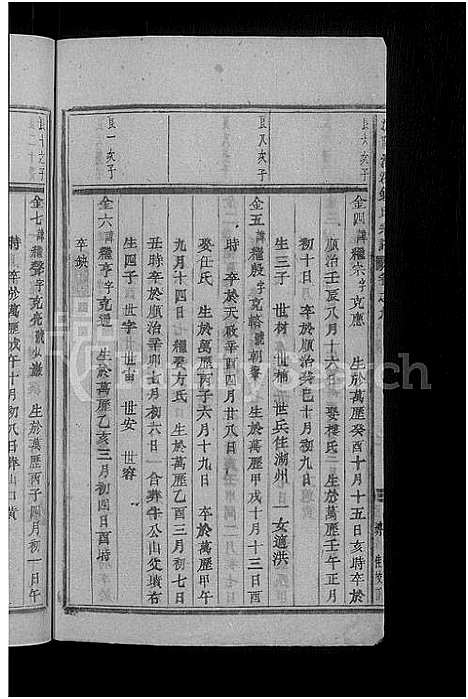 良六次子
金四諱繼宗字克應 生於萬歷癸酉十月十五日亥時卒於
順治壬辰八月十六日 娶樓氏 生於萬歷壬午正月
初十日 卒於順治癸巳十月初九日
生三子 世材 世楠 世兵住湖州 一女適洪
良八次子
金五諱繼殷字克輅號朝 生於萬歷甲戌十月十三日酉
時 卒於天啟辛酉四月廿八日
娶仕氏 生於萬歷丙子六月十九日 卒於萬歷甲午
九月十四日 繼娶方氏 生於萬歷乙酉三月初七日
丑時卒於順治辛卯七月初六日 合葬牛公山父墳右
生四子 世字 世宙 世安 世容
良一次子
金六諱繼 字克道 生於萬歷乙亥三月初四日酉時
卒缺
良十次子
金七諱繼聲字克亮號 生於萬歷丙子四月初一日午
時 卒於萬歷戊午十月初八日葬山口黃